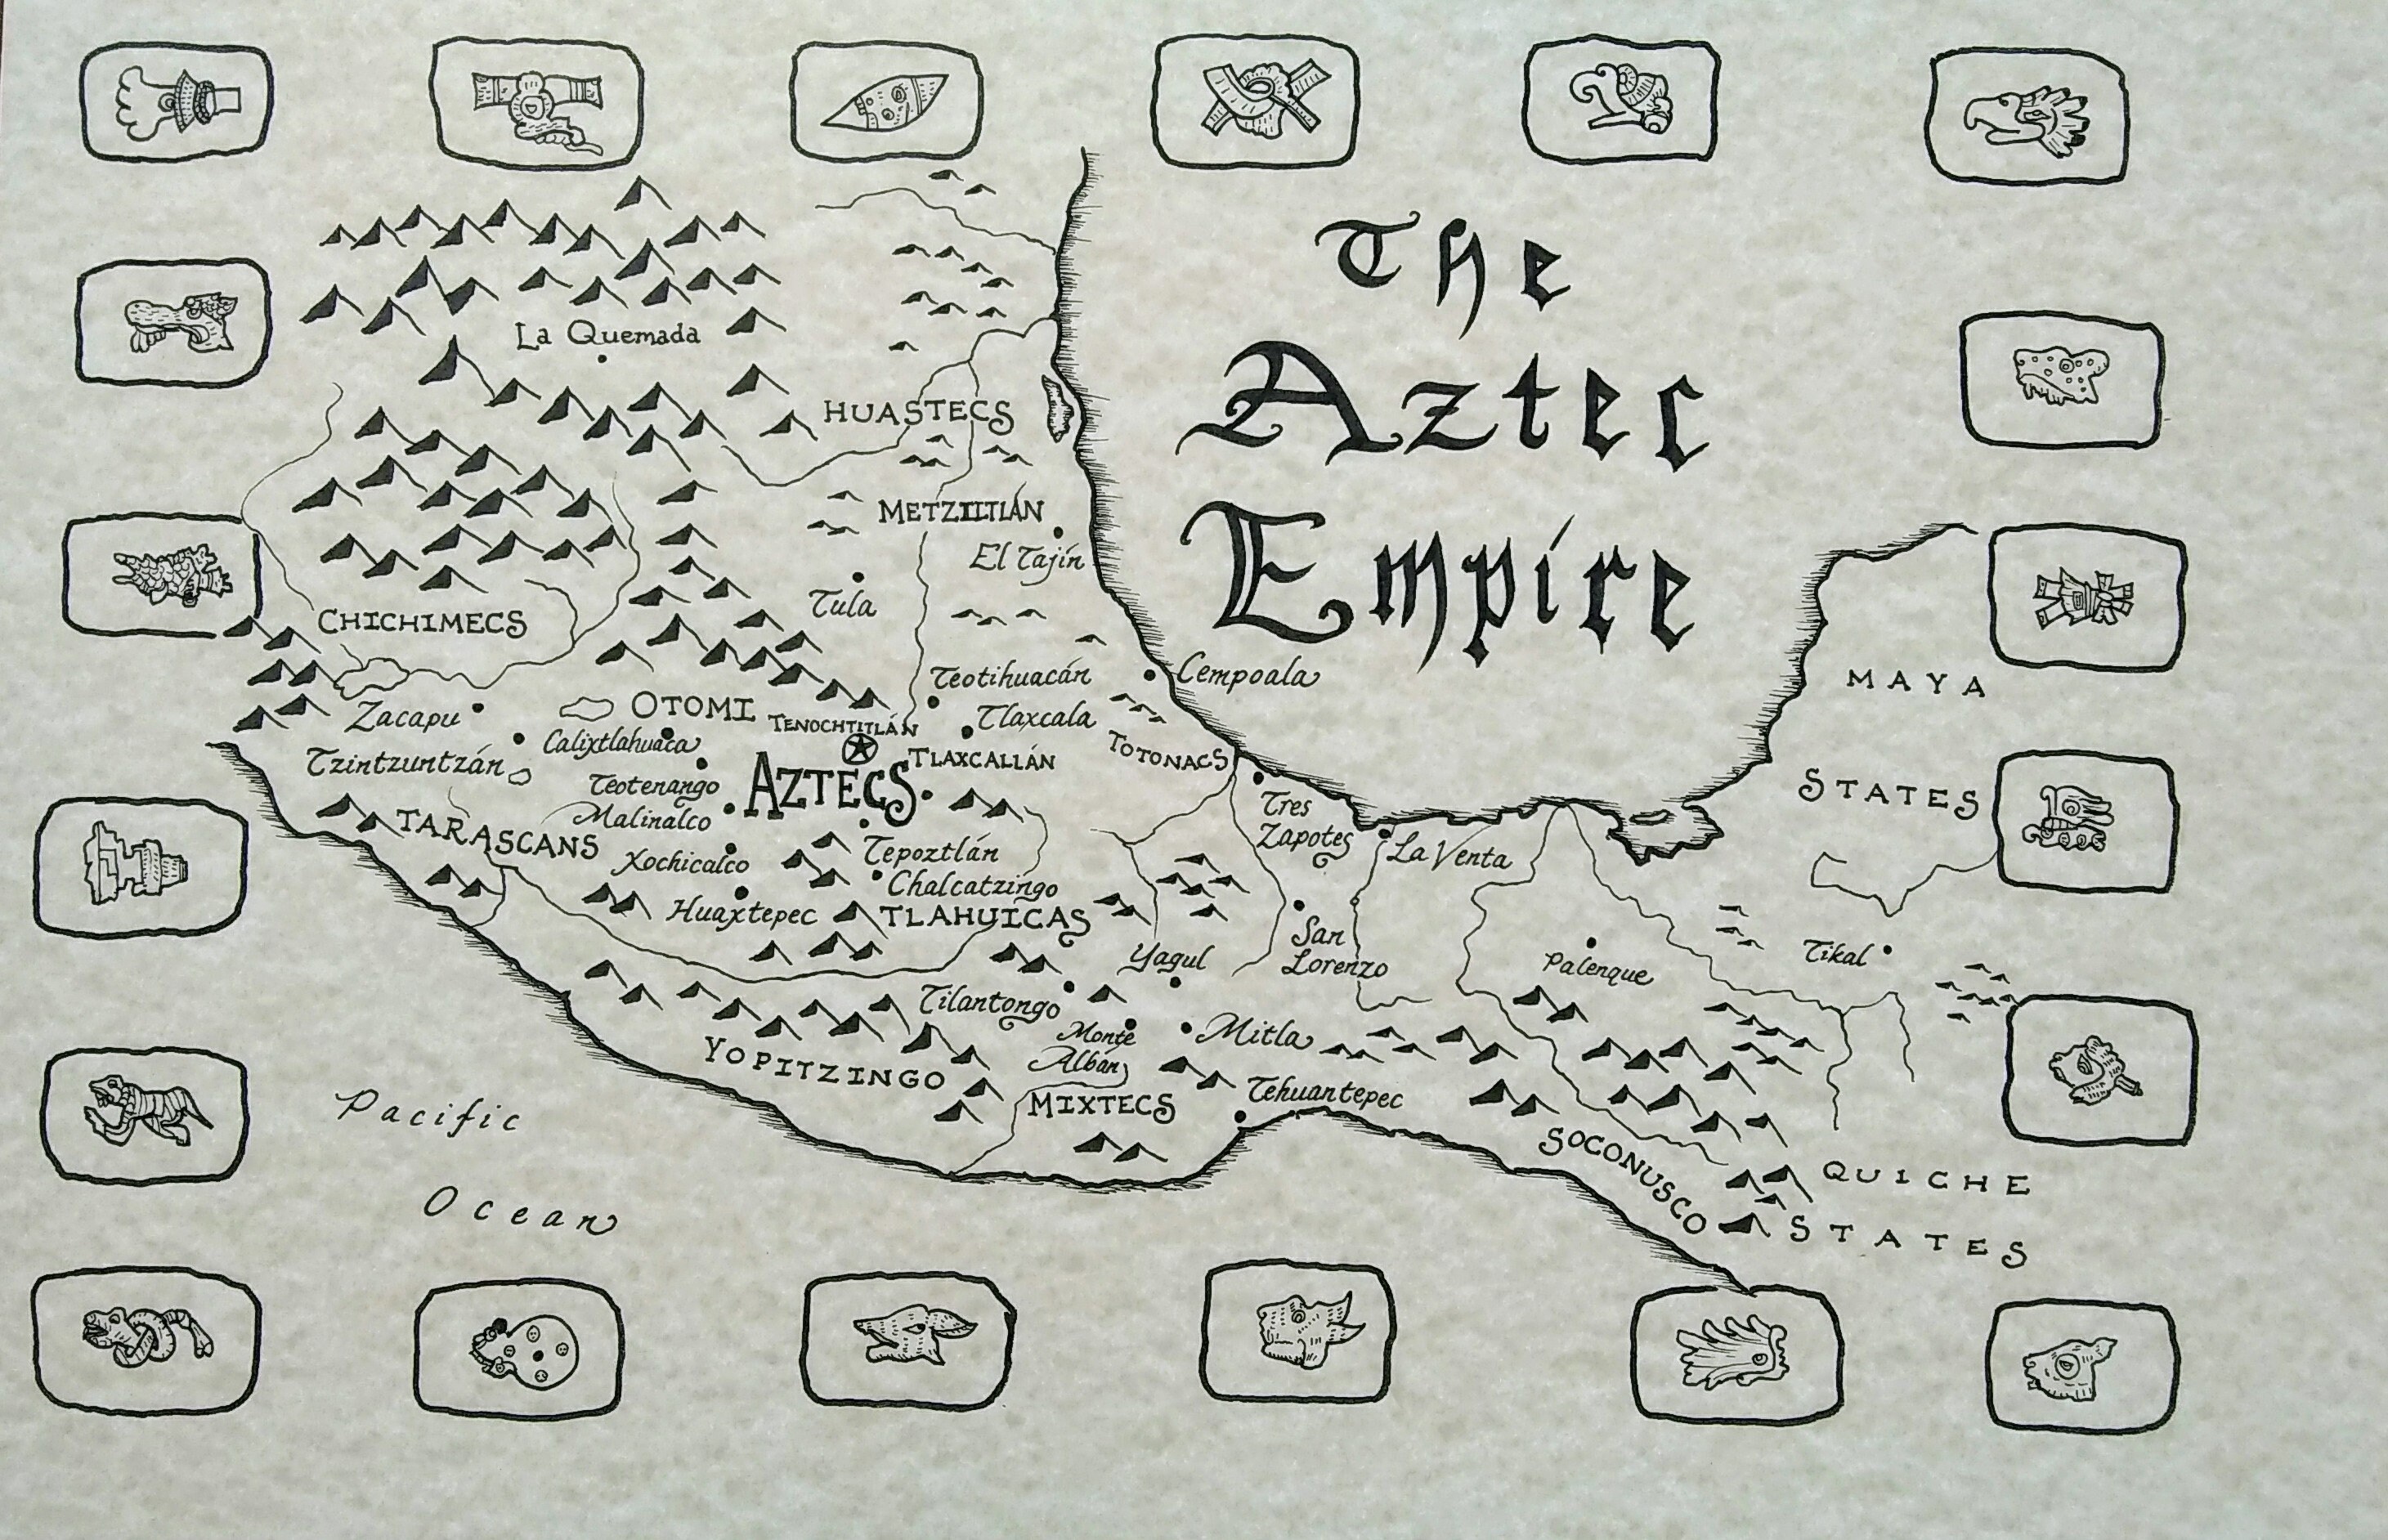 The
Aztec
Empire
La Quemada
HUASTECS
METZTITLÁN
El Tajín
Tula
CHICHIMECS
Teotihuacán
Cempoala
MAYA
STATES
Zacapu
OTOMI
TENOCHTITLÁN
Tlaxcala
Calixtlahuaca
Tzintzuntzán
TLAXCALLÁN
TOTONACS
Teotenango
AZTECS
Malinalco
TARASCANS
Tres
Zapotes
La Venta
Xochicalco
Tepoztlán
Chalcatzingo
Huaxtepec
TLAHUICAS
San
Lorenzo
Yagul
Palenque
Tikal
Tilantongo
Monte
Albán
Mitla
YOPITZINGO
MIXTECS
Tehuantepec
Pacific
Ocean
SOCONUSCO
QUICHE
STATES